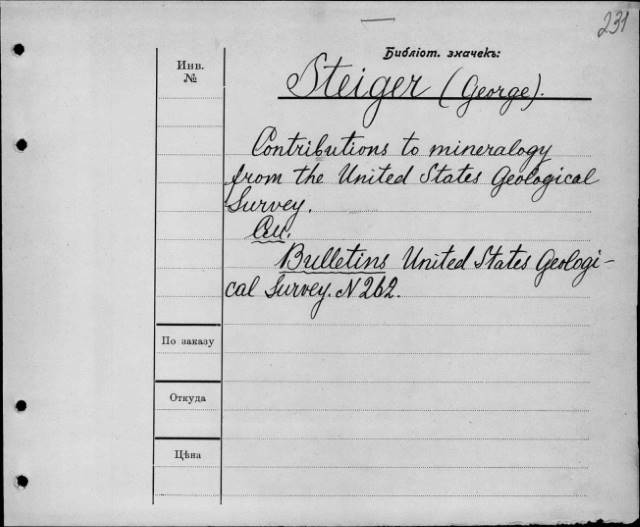 231
Библіот. значекъ:
Инв.
№
Steiger (George).
Contributions to mineralogy
from the United States Geological
Survey.
См.
Bulletins United States Geologi-
cal Survey. N 262.
По заказу
Откуда
Цѣна